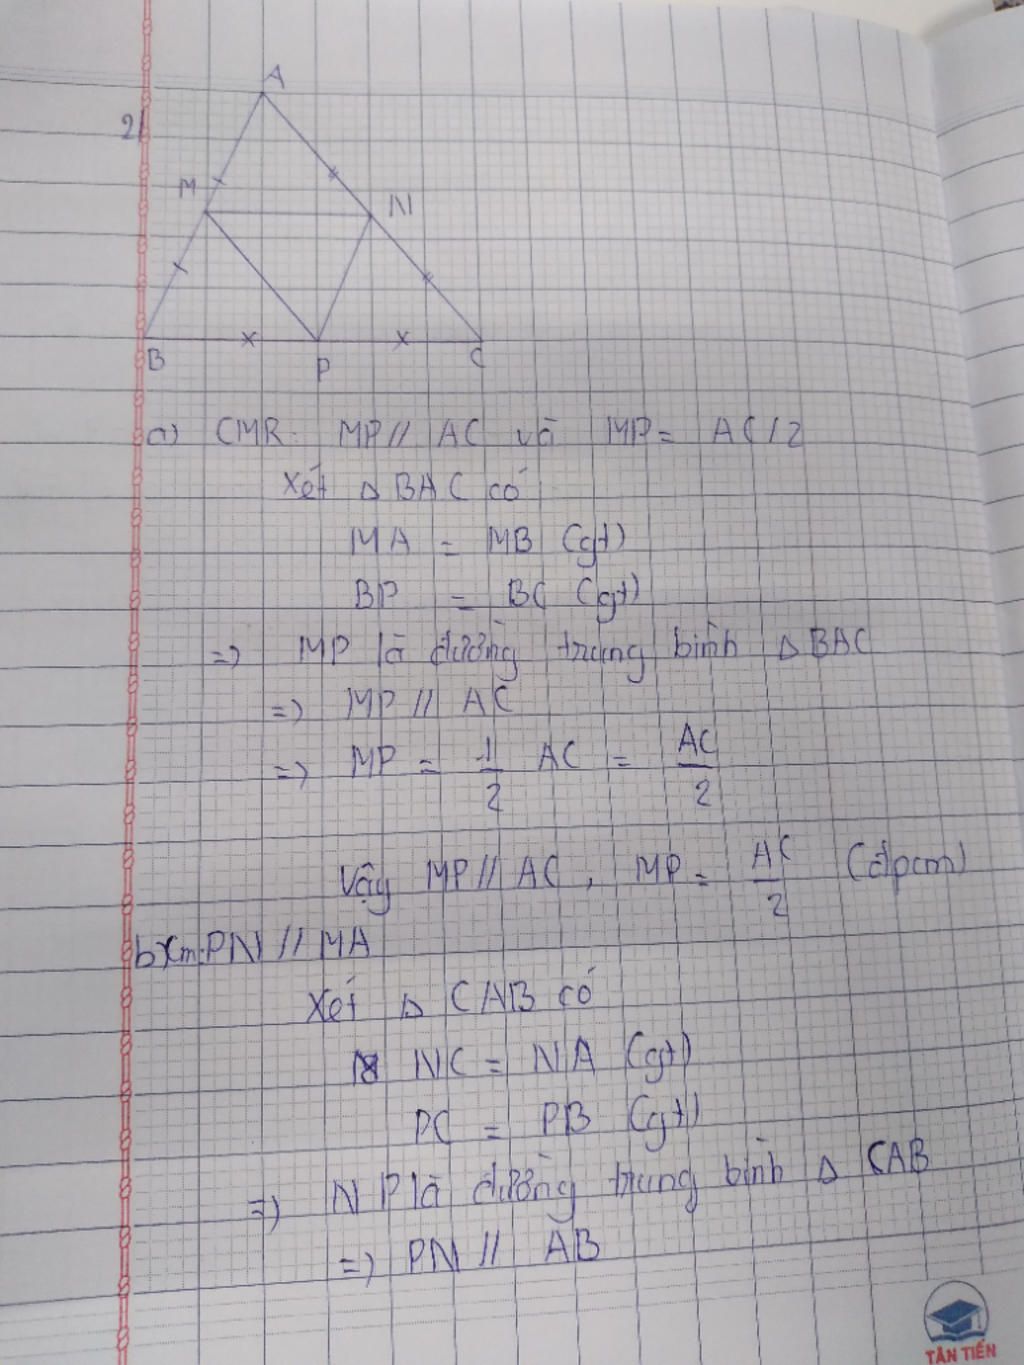 2/
A
M
N
B
P
C
a) CMR: MP // AC và MP = AC/2
Xét Δ BAC có
MA = MB (gt)
BP = BC (gt)
=> MP là đường trung bình Δ BAC
=> MP // AC
=> MP = 1/2 AC = AC/2
Vậy MP // AC, MP = AC/2 (đpcm)
b) Cm: PN // MA
Xét Δ CAB có
NC = NA (gt)
PC = PB (gt)
=> NP là đường trung bình Δ CAB
=> PN // AB
TÂN TIẾN